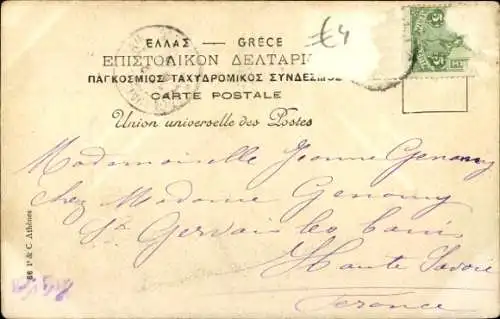 €4
ΕΛΛΑΣ — GRÈCE
ΕΠΙΣΤΟΛΙΚΟΝ ΔΕΛΤΑΡΙ
ΠΑΓΚΟΣΜΙΟΣ ΤΑΧΥΔΡΟΜΙΚΟΣ ΣΥΝΔΕΣΜΟΣ
CARTE POSTALE
Union universelle des Postes
5
Mademoiselle Jeanne Genomy
chez Madame Genomy
St Gervais les bains
Haute Savoie
France
86 P & C Athènes